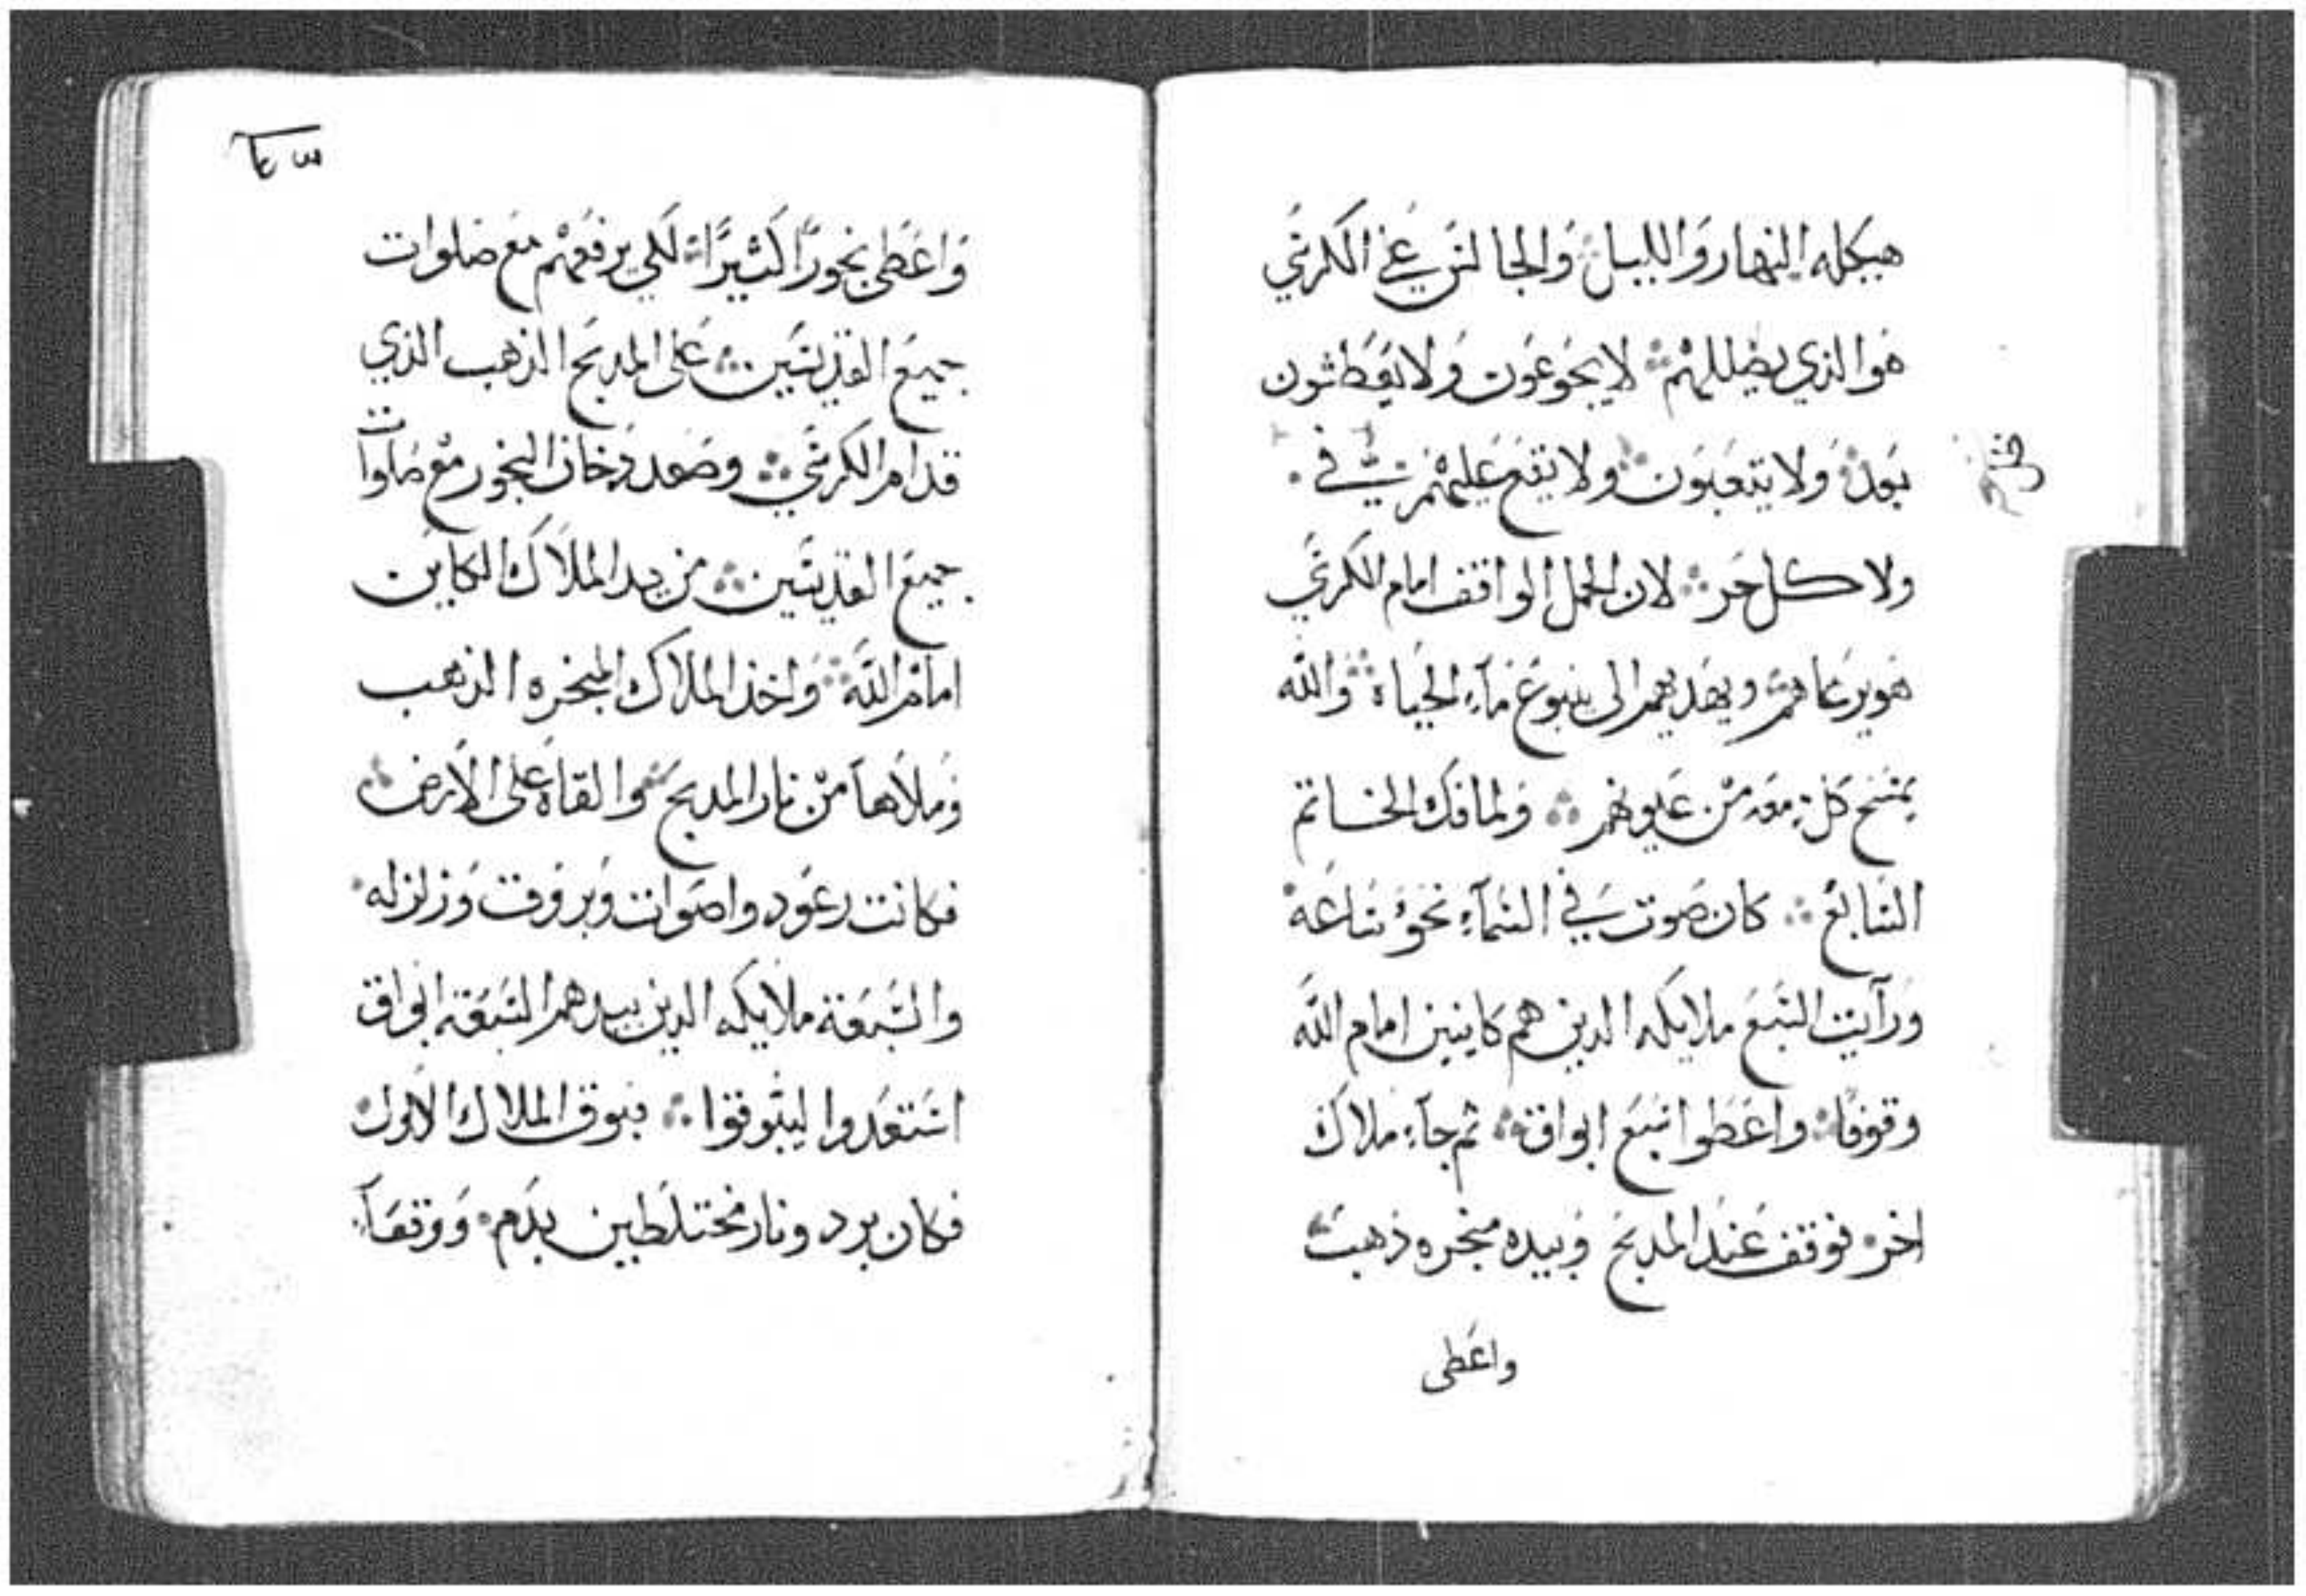 هيكله النهار والليل والجالس علي الكرسي
هو الذي يضللهم لا يجوعون ولا يعطشون
بعد ولا يتعبون ولا يقع عليهم
ولا كل حر لان الحمل الواقف امام الكرسي
هو يرعاهم ويهديهم الى ينبوع مآء الحياة والله
يمسح كل دمعه من عيونهم ولما فك الخاتم
السابع كان صوت في السمآء نحو ساعه
ورآيت السبع ملايكه الدين هم كاينين امام الله
وقوفا واعطوا سبع ابواق ثم جآء ملاك
اخر فوقف عند المدبح وبيده مبخره ذهب
واعطى
واعطى بخورًا كثيرًا لكي يرفعهم مع صلوات
جميع القديسين على المدبح الذهب الذي
قدام الكرسي وصعد دخان البخور مع صلوات
جميع القديسين من يد الملاك الكاين
امام الله واخذ الملاك المبخره الذهب
وملاهآ من نار المدبح والقاه على الارض
فكانت رعود واصوات وبروق وزلزله
والسبعة ملايكه الدين بيدهم السبعة ابواق
استعدوا ليبوقوا فبوق الملاك الاول
فكان برد ونار مختلطين بدم ووقعآ